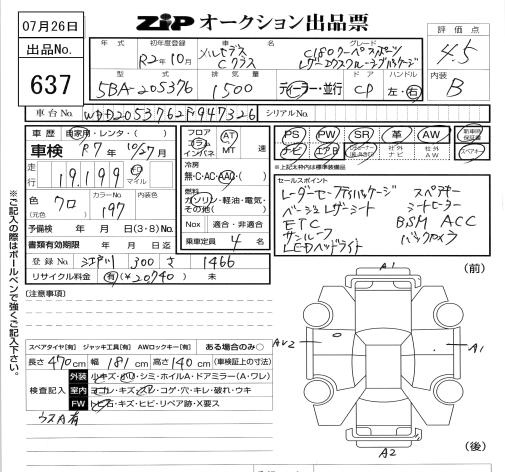 07月26日
ZIP オークション出品票
出品No.
637
年式
初年度登録
R2年10月
車名
メルセデス
Cクラス
グレード
C180クーペスポーツ
レザーエクスクルーシブパッケージ
評価点
4.5
型式
5BA-205376
排気量
1500
ディーラー・並行
ドア
CP
ハンドル
左・右
内装
B
車台No.
WDD2053762F947326
シリアルNo.
車歴 自家用・レンタ・( )
車検 R7年10/27月
走行
19,199 km マイル
色 クロ
(元色)
カラーNo.
197
内装色
予備検 年 月 日(3・8)No.
書類有効期限 年 月 日迄
登録No. 江戸川 300 さ 1466
リサイクル料金 有(¥20740) 未
フロア
コラム
インパネ
AT
MT
速
冷房
無・C・AC・AAC・( )
燃料
ガソリン・軽油・電気・
その他( )
Nox 適合・非適合
乗車定員 4 名
PS PW SR 革 AW 新車時保証書
ナビ エアB 社外ナビ 社外AW スペアキー
※上記太枠内は標準装備品
セールスポイント
レーダーセーフティパッケージ スペアキー
ベージュレザーシート シートヒーター
ETC BSM ACC
サンルーフ バックカメラ
LEDヘッドライト
[注意事項]
スペアタイヤ[有] ジャッキ工具[有] AWロックキー[有] ある場合のみ○
長さ 470 cm 幅 181 cm 高さ 140 cm (車検証上の寸法)
検査記入
外装 小キズ・ハリ・シミ・ホイルA・ドアミラー(A・ワレ)
室内 ヨゴレ・キズ・スレ・コゲ・穴・キレ・破れ・ウキ
FW トビ石・キズ・ヒビ・リペア跡・X要ス
ウスA有
A1
(前)
AU2
A1
A2
(後)
※ご記入の際はボールペンで強くご記入下さい。